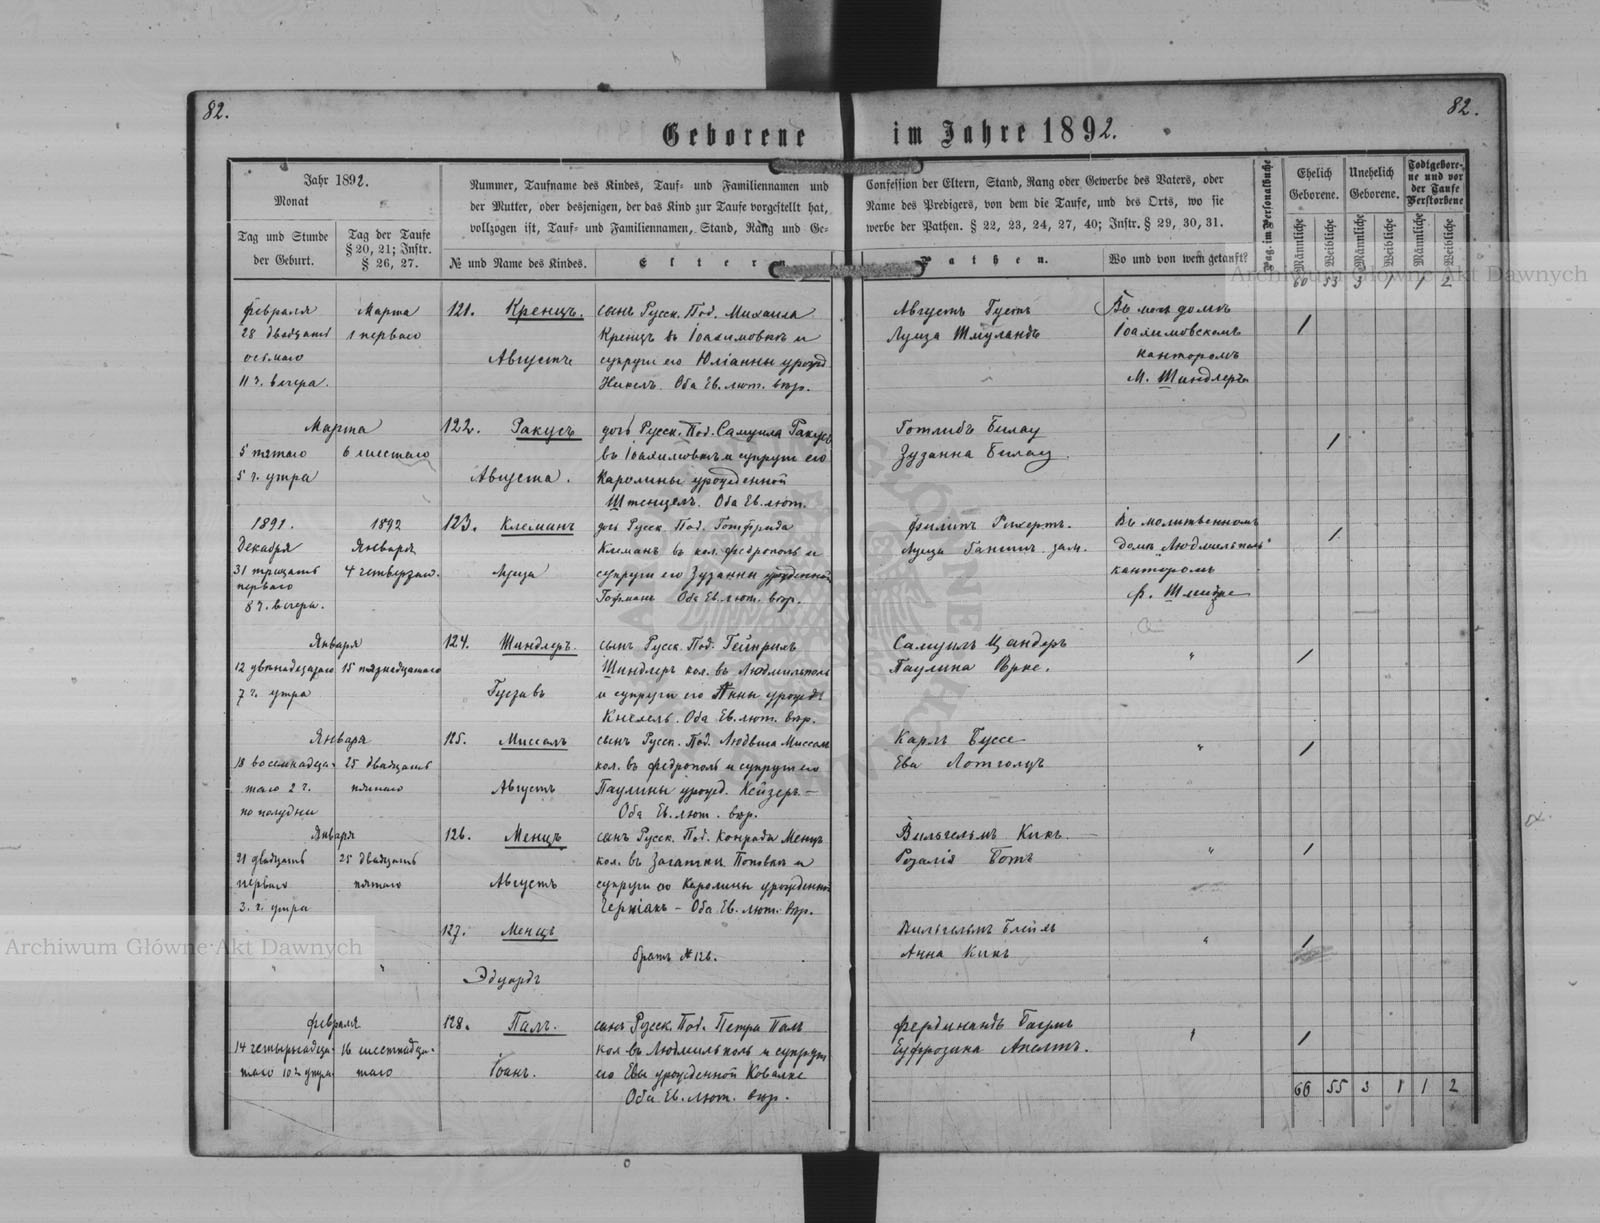 82.
82.
Geborene im Jahre 1892.
Jahr 1892.
Monat
Tag und Stunde
der Geburt.
Tag der Taufe
§ 20, 21; Instr.
§ 26, 27.
Nummer, Taufname des Kindes, Tauf- und Familiennamen und
der Mutter, oder desjenigen, der das Kind zur Taufe vorgestellt hat,
vollzogen ist, Tauf- und Familiennamen, Stand, Rang und Ge-
№ und Name des Kindes.
Eltern
Confession der Eltern, Stand, Rang oder Gewerbe des Vaters, oder
Name des Predigers, von dem die Taufe, und des Orts, wo sie
werbe der Pathen. § 22, 23, 24, 27, 40; Instr. § 29, 30, 31.
Pathen.
Wo und von wem getauft?
Pag. im Personalbuche
Ehelich
Geborene.
Unehelich
Geborene.
Todtgebore-
ne und vor
der Taufe
Verstorbene
Männliche
Weibliche
Männliche
Weibliche
Männliche
Weibliche
60 53 3 1 1 2
Февраля
28 двадцать
осьмаго
11 ч. вечера.
Марта
1 перваго
121. Кренцъ.
Августъ
сынъ Русск. Под. Михаила
Кренцъ въ Іоахимовкѣ и
супруги его Юліанны урожд
Никель. Оба Ев. лют. вѣр.
Августъ Густъ
Луиза Шмуландъ
Въ мол. домѣ
Іоахимовскомъ
канторомъ
М. Шиндлеръ
1
Марта
5 пятаго
5 ч. утра
6 шестаго
122. Ракусъ
Августа.
дочь Русск. Под. Самуила Ракусъ
въ Іоахимовкѣ и супруги его
Каролины урожденной
Штенцель. Оба Ев. лют.
Готлибъ Билау
Зузанна Билау.
1
1891.
Декабря
31 тридцать
перваго
8 ч. вечера.
1892
Января
4 четвертаго.
123. Клеманъ
Луиза
дочь Русск. Под. Готфрида
Клеманъ въ кол. Федрополь и
супруги его Зузанны урожденной
Гофманъ Оба Ев. лют. вѣр.
Филипъ Рихертъ.
Въ молитвенномъ
домѣ Людмильполь
канторомъ
1
Января
12 двѣнадцатаго
7 ч. утра
15 пятнадцатаго
124. Шиндлеръ.
Густавъ
сынъ Русск. Под. Гейнрихъ
Шиндлеръ кол. въ Людмильполь
и супруги его Анны урожд.
Оба Ев. лют. вѣр.
Самуилъ Цандеръ
Паулина
"
1
Января
18 восемнадца-
таго 2 ч.
по полудни
25 двадцать
пятаго
125. Миссалъ
Августъ
сынъ Русск. Под. Людвига Миссалъ
кол. въ Федрополь и супруги его
Паулины урожд. Кейзеръ. —
Оба Ев. лют. вѣр.
Карлъ Буссе
Ева Лотгольцъ
"
1
Января
21 двадцать
перваго
3. ч. утра
25 двадцать
пятаго
126. Менцъ
Августъ
сынъ Русск. Под. Конрада Менцъ
кол. въ Поповка и
супруги его Каролины урожденной
— Оба Ев. лют. вѣр.
Вильгельмъ Кикъ. —
Розалія Ботъ
"
1
"
"
127. Менцъ
Эдуардъ
братъ № 126.
Вильгельмъ
Анна Кикъ
"
1
Февраля
14 четырнадца-
таго 10 ч. утра
16 шестнадца-
таго
128. Палъ.
Іоанъ.
сынъ Русск. Под. Петра Палъ
кол. въ Людмильполь и супруги
его Евы урожденной Ковалке
Оба Ев. лют. вѣр.
Фердинандъ
Еуфрозина Апельтъ.
"
1
66 55 3 1 1 2
Archiwum Główne Akt Dawnych
Archiwum Główne Akt Dawnych